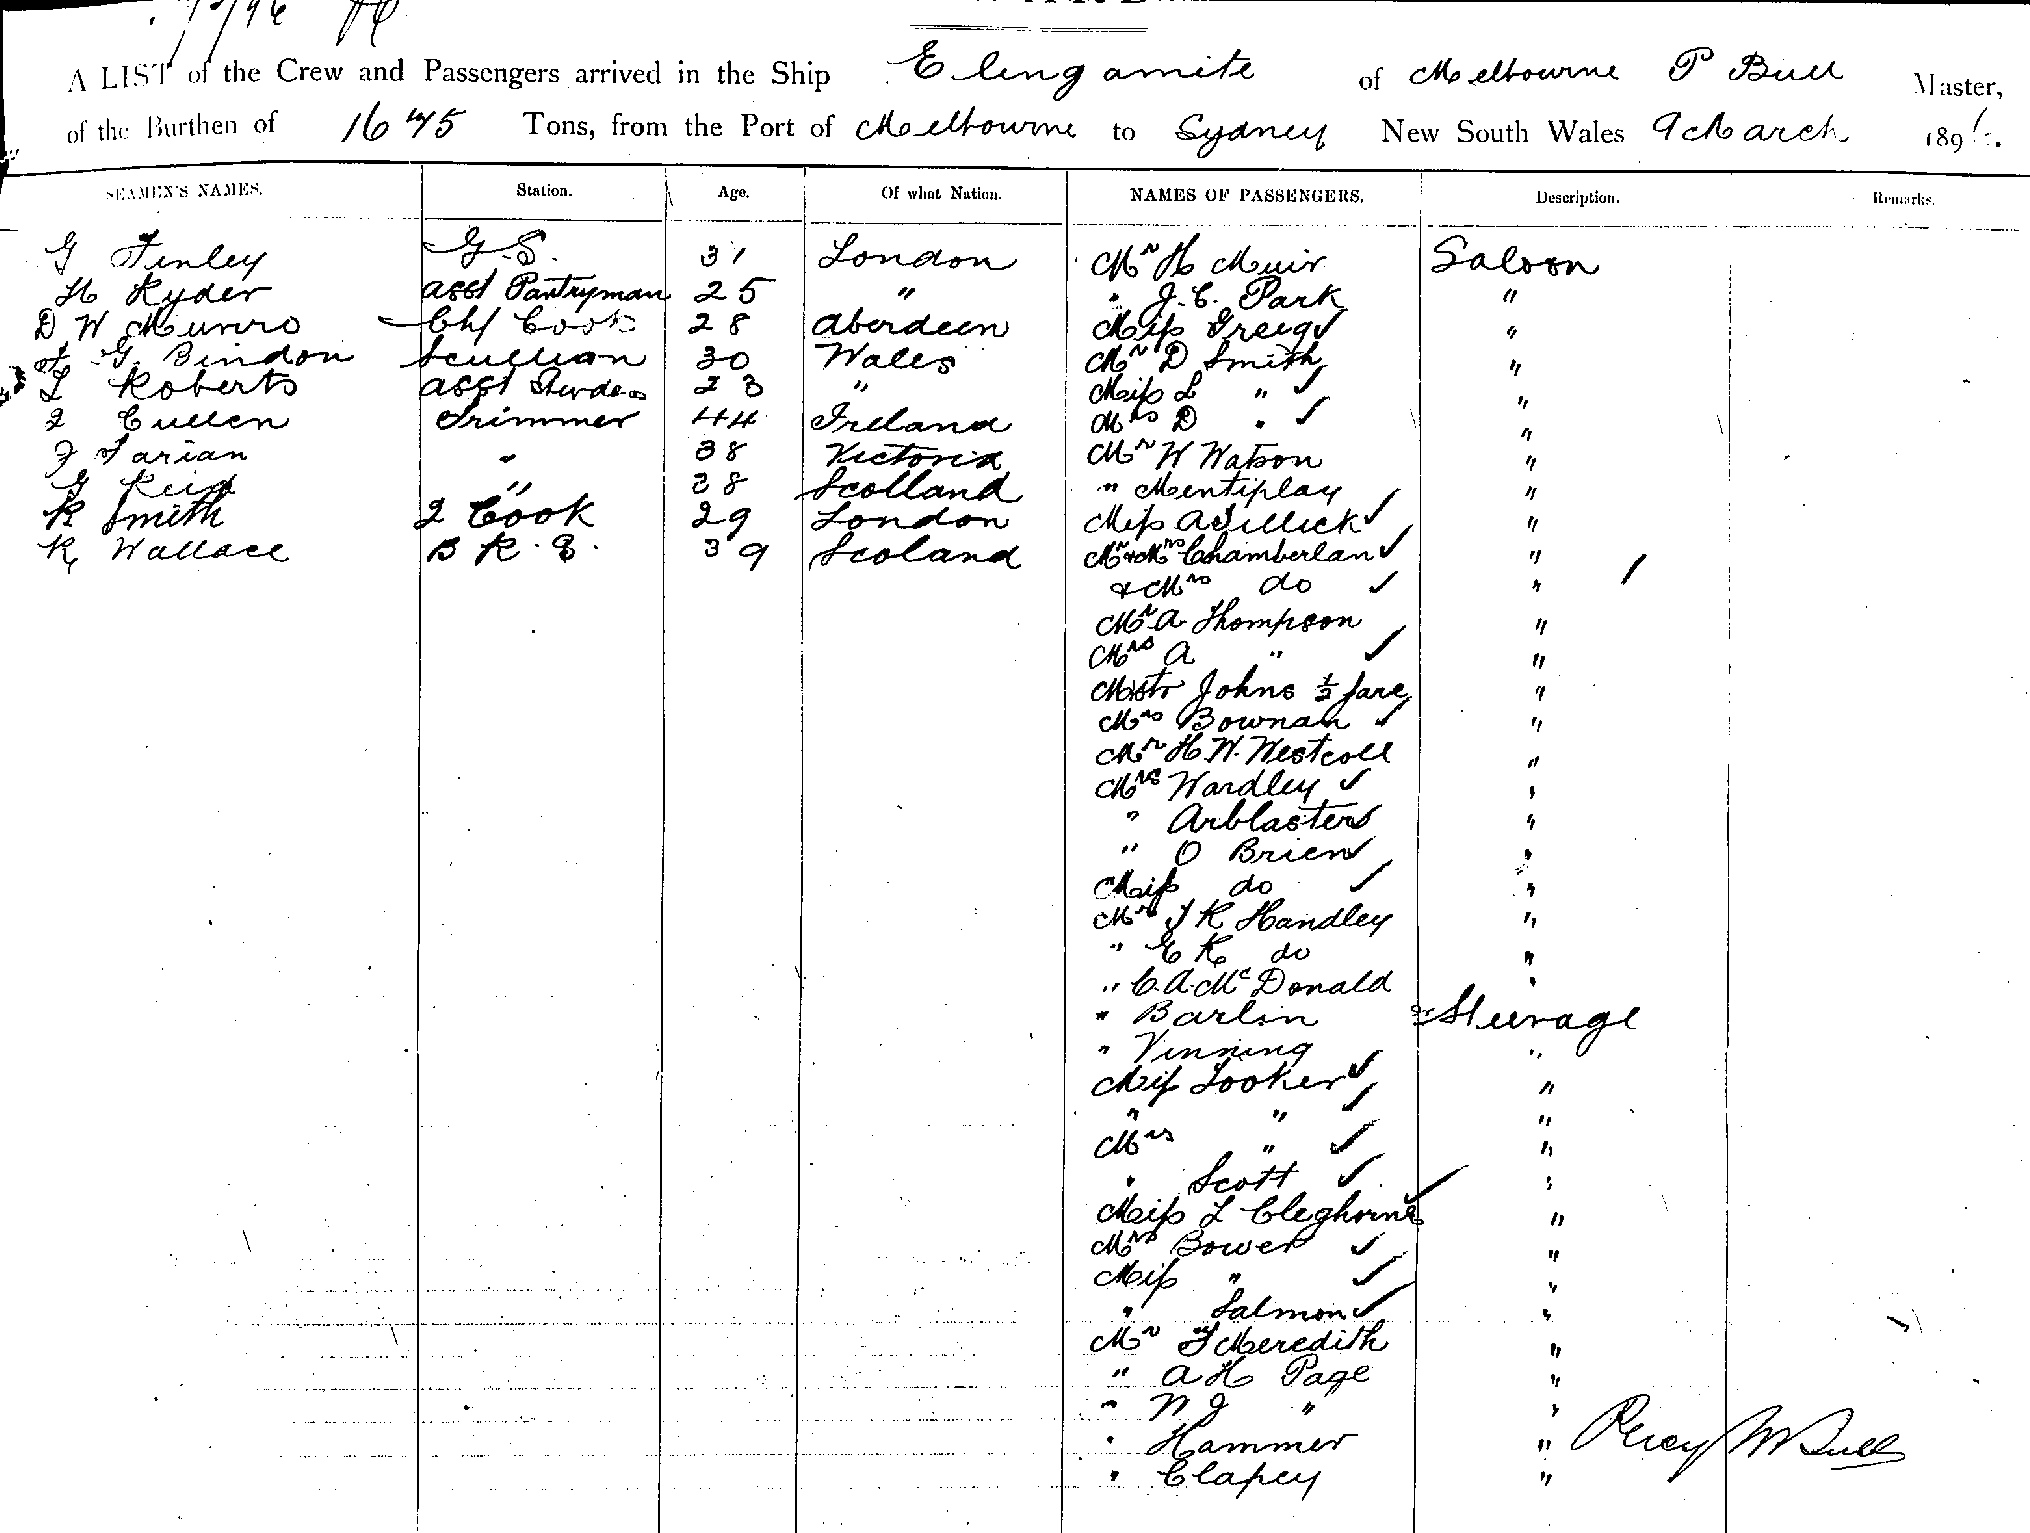 A LIST of the Crew and Passengers arrived in the Ship Elingamite of Melbourne P Bull Master,
of the Burthen of 1675 Tons, from the Port of Melbourne to Sydney New South Wales 9 March 189
SEAMEN'S NAMES. Station. Age. Of what Nation. NAMES OF PASSENGERS. Description. Remarks.
G Finley G.S. 31 London Mr H Muir Saloon
H Ryder asst Pantryman 25 " " J.C. Park "
D W Munro Chf Cook 28 Aberdeen Miss Greig "
G Bindon Scullian 30 Wales Mr D Smith "
L Roberts asst 23 " Miss L " "
J Cullen Trimmer 44 Ireland Mrs D " "
J Farian " 38 Victoria Mr W Watson "
G Reid " 28 Scotland " Mentiplay "
R Smith 2 Cook 29 London Miss A Sillick "
R Wallace B.R.S. 39 Scoland Mr & Mrs Chamberlan "
& Mrs do "
Mr A Thompson "
Mrs A " "
Mstr Johns ½ fare "
Mrs Bownan "
Mr H.W. Westcott "
Mrs Wardley "
" Arblaster "
" O Brien "
Miss do "
Mr J R Handley "
" E R do "
" C.A. McDonald "
" Barlin Steerage
" Vinning "
Miss Looker "
" " "
Mrs " "
" Scott "
Miss L Cleghorne "
Mrs Bower "
Miss " "
" Salmon "
Mr Meredith "
" A H Page "
" W J " "
" Hammer " Percy W Bull
" Clapey "